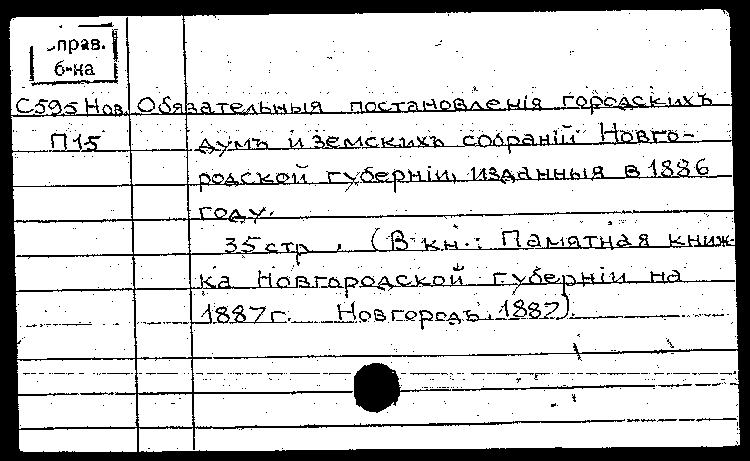 прав.
б-ка
С595 Нов Обязательныя постановленія городскихъ
П15 думъ и земскихъ собраній Новго-
родской губерніи, изданныя в 1886
году.
35 стр. (В кн.: Памятная книж-
ка Новгородской губерніи на
1887 г. Новгородъ, 1887).